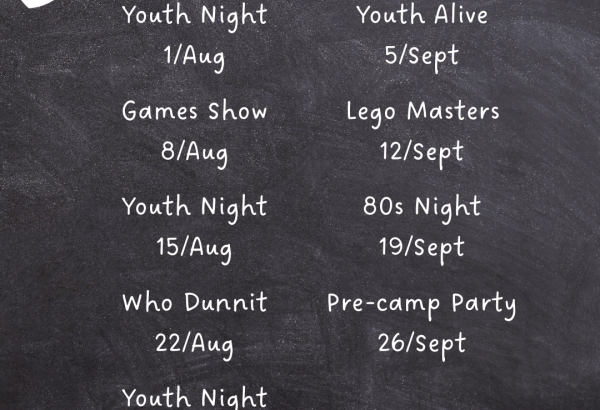 Youth Night
1/Aug
Games Show
8/Aug
Youth Night
15/Aug
Who Dunnit
22/Aug
Youth Night
Youth Alive
5/Sept
Lego Masters
12/Sept
80s Night
19/Sept
Pre-camp Party
26/Sept